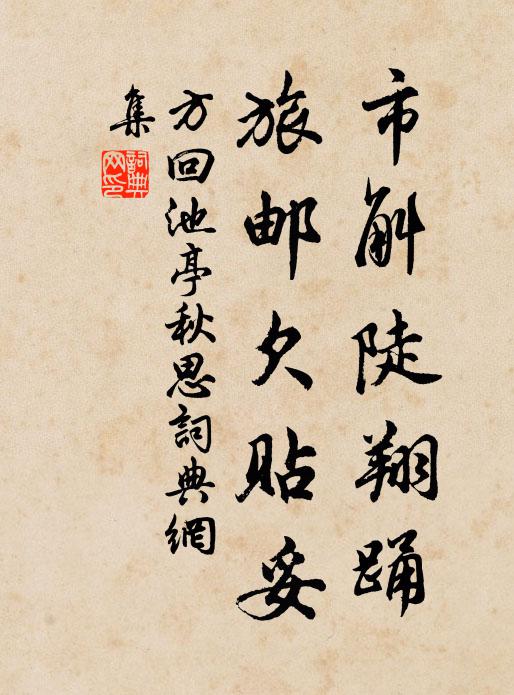 市斛陡翔踊
旅邮欠贴妥
方回池亭秋思詞典網
集
詞典
网印